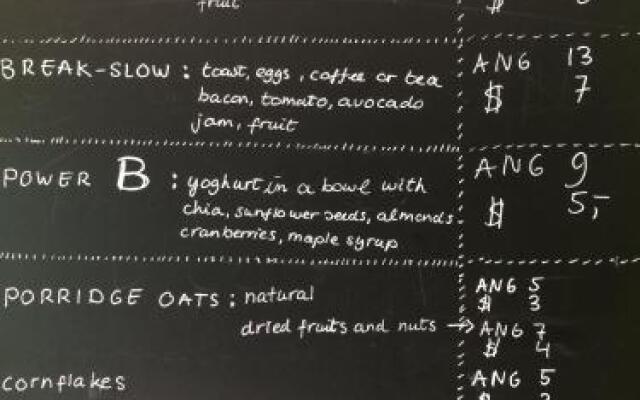 fruit $
BREAK-SLOW : toast, eggs, coffee or tea ANG 13
bacon, tomato, avocado $ 7
jam, fruit
POWER B : yoghurt in a bowl with ANG 9
chia, sunflower seeds, almonds $ 5,-
cranberries, maple syrup
PORRIDGE OATS : natural ANG 5
$ 3
dried fruits and nuts → ANG 7
$ 4
cornflakes ANG 5
$